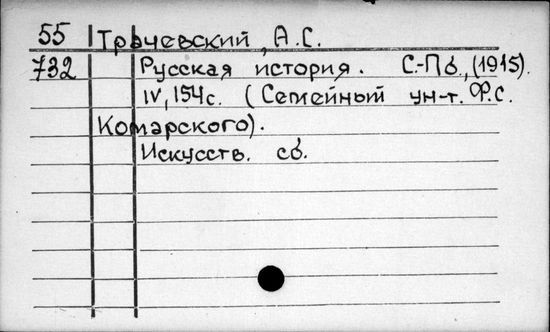 55 Трачевский, А.С.
732 Русская история. С.-Пб., (1915).
IV, 154с. (Семейный ун-т. Ф.С.
Комарского).
Искусств. сб.